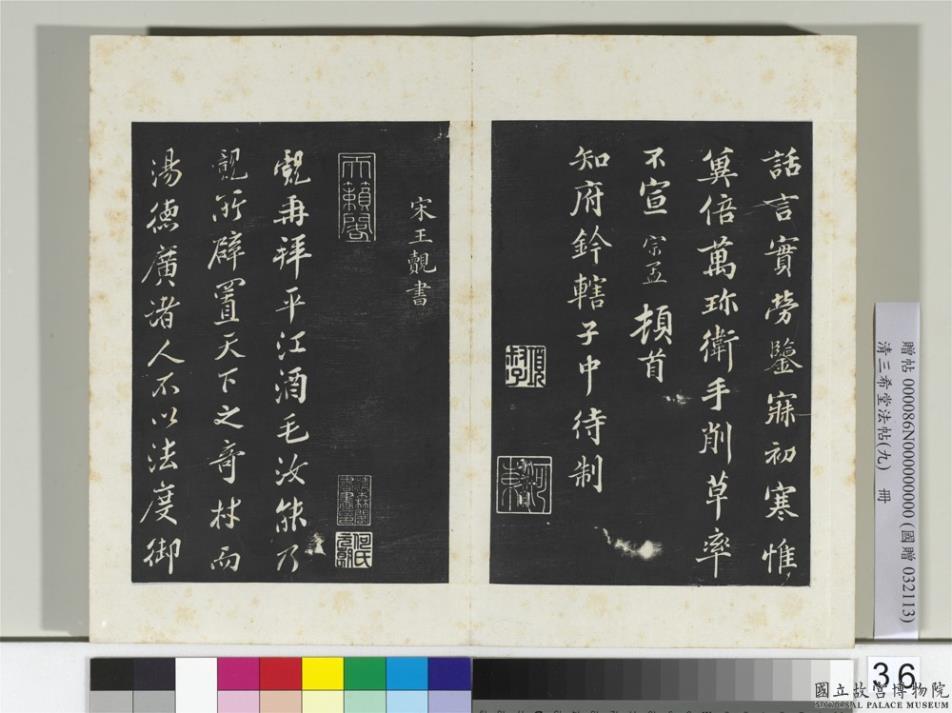 話言實勞鑒寐初寒惟
冀倍萬珎衛手削草率
不宣 宗孟 頓首
知府鈐轄子中待制
宋王覿書
天籟閣
覿再拜平江酒毛汝能乃
覿所辟置天下之奇材而
湯德廣諸人不以法度御
贈帖 000086N000000000 (國贈 032113)
清三希堂法帖(九) 冊
36
國立故宮博物院
NATIONAL PALACE MUSEUM